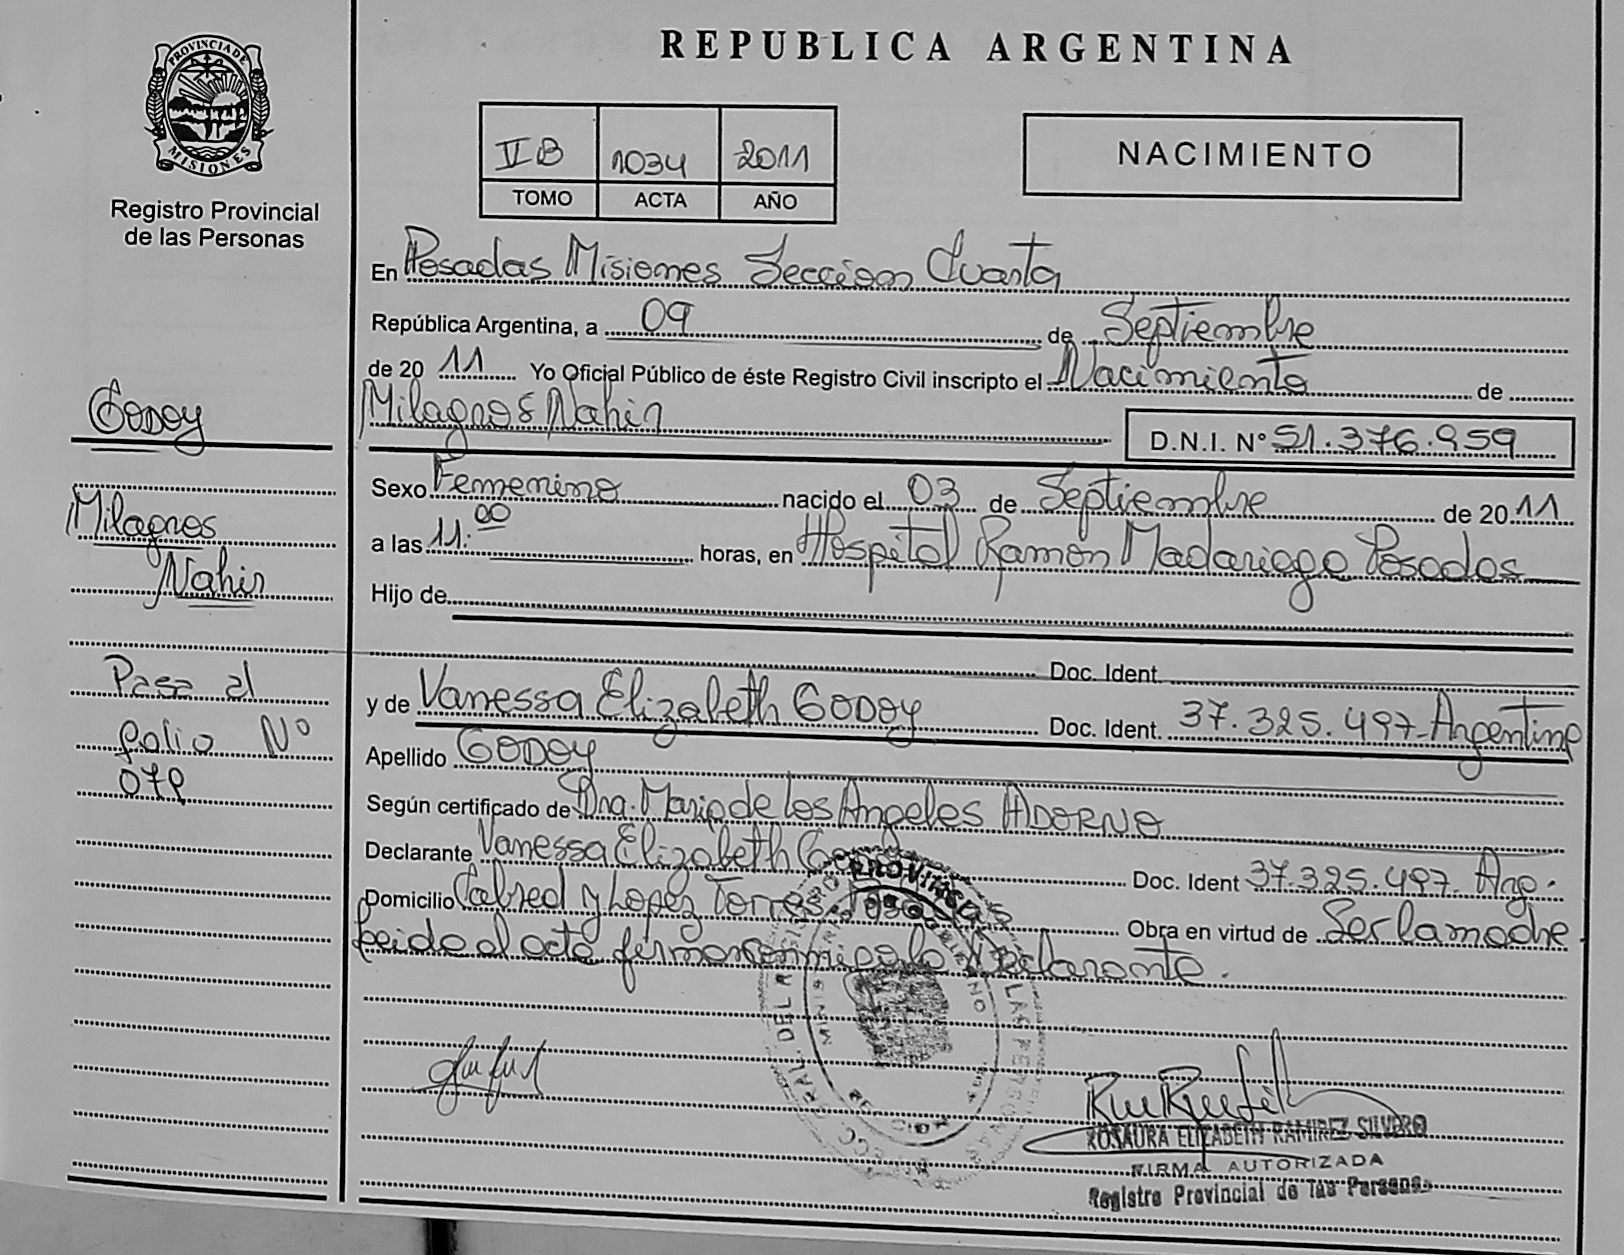 REPUBLICA ARGENTINA
PROVINCIA DE
MISIONES
Registro Provincial
de las Personas
II B 1034 2011
TOMO ACTA AÑO
NACIMIENTO
En Posadas Misiones Seccion Cuarta
República Argentina, a 09 de Septiembre
de 20 11 Yo Oficial Público de éste Registro Civil inscripto el Nacimiento de
Milagros Nahir
D.N.I. Nº 51.376.959
Sexo Femenino nacido el 03 de Septiembre de 20 11
a las 11:00 horas, en Hospital Ramon Madariaga Posadas
Hijo de
Doc. Ident.
y de Vanessa Elizabeth GODOY Doc. Ident. 37.325.497- Argentina
Apellido GODOY
Según certificado de Dra. Maria de Los Angeles ADORNO
Declarante Vanessa Elizabeth Doc. Ident 37.325.497. Arg.
Domicilio Cabred y Lopez Torres Obra en virtud de Ser la madre
Leido el acta firman conmigo la declarante.
GODOY
Milagros
Nahir
Pasa al
folio Nº
ROSAURA ELIZABETH RAMIREZ SILVERO
FIRMA AUTORIZADA
Registro Provincial de las Personas